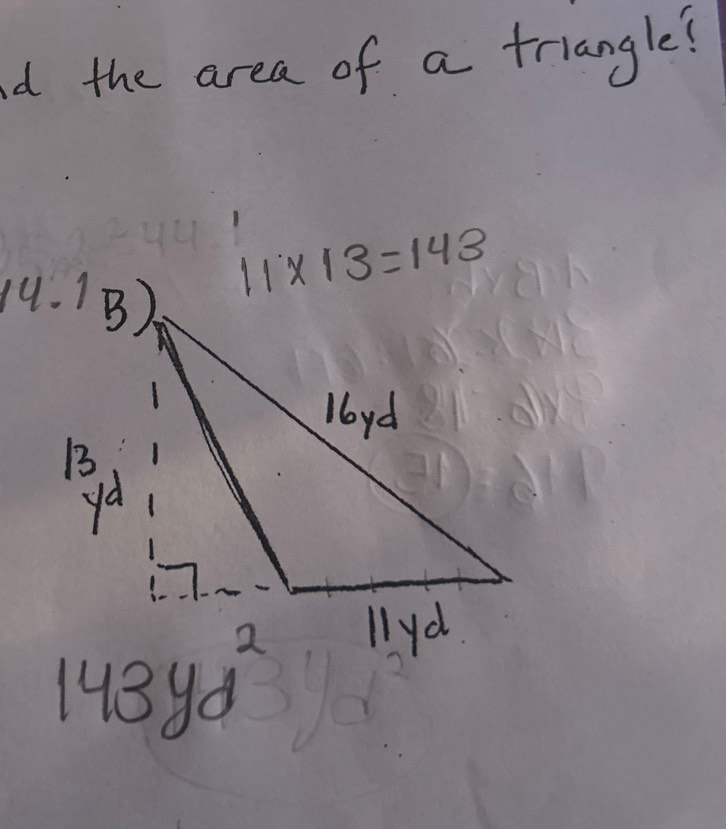 the area of a triangle?
11 x 13 = 143
14.1 B)
16yd
13
yd
11yd
143yd²